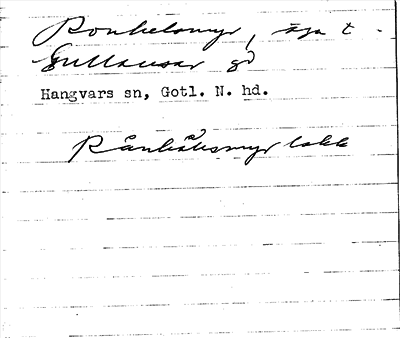 Ronhelsmyr, äga t.
Gullausar gd
Hangvars sn, Gotl. N. hd.
Rånhålsmyr lokk